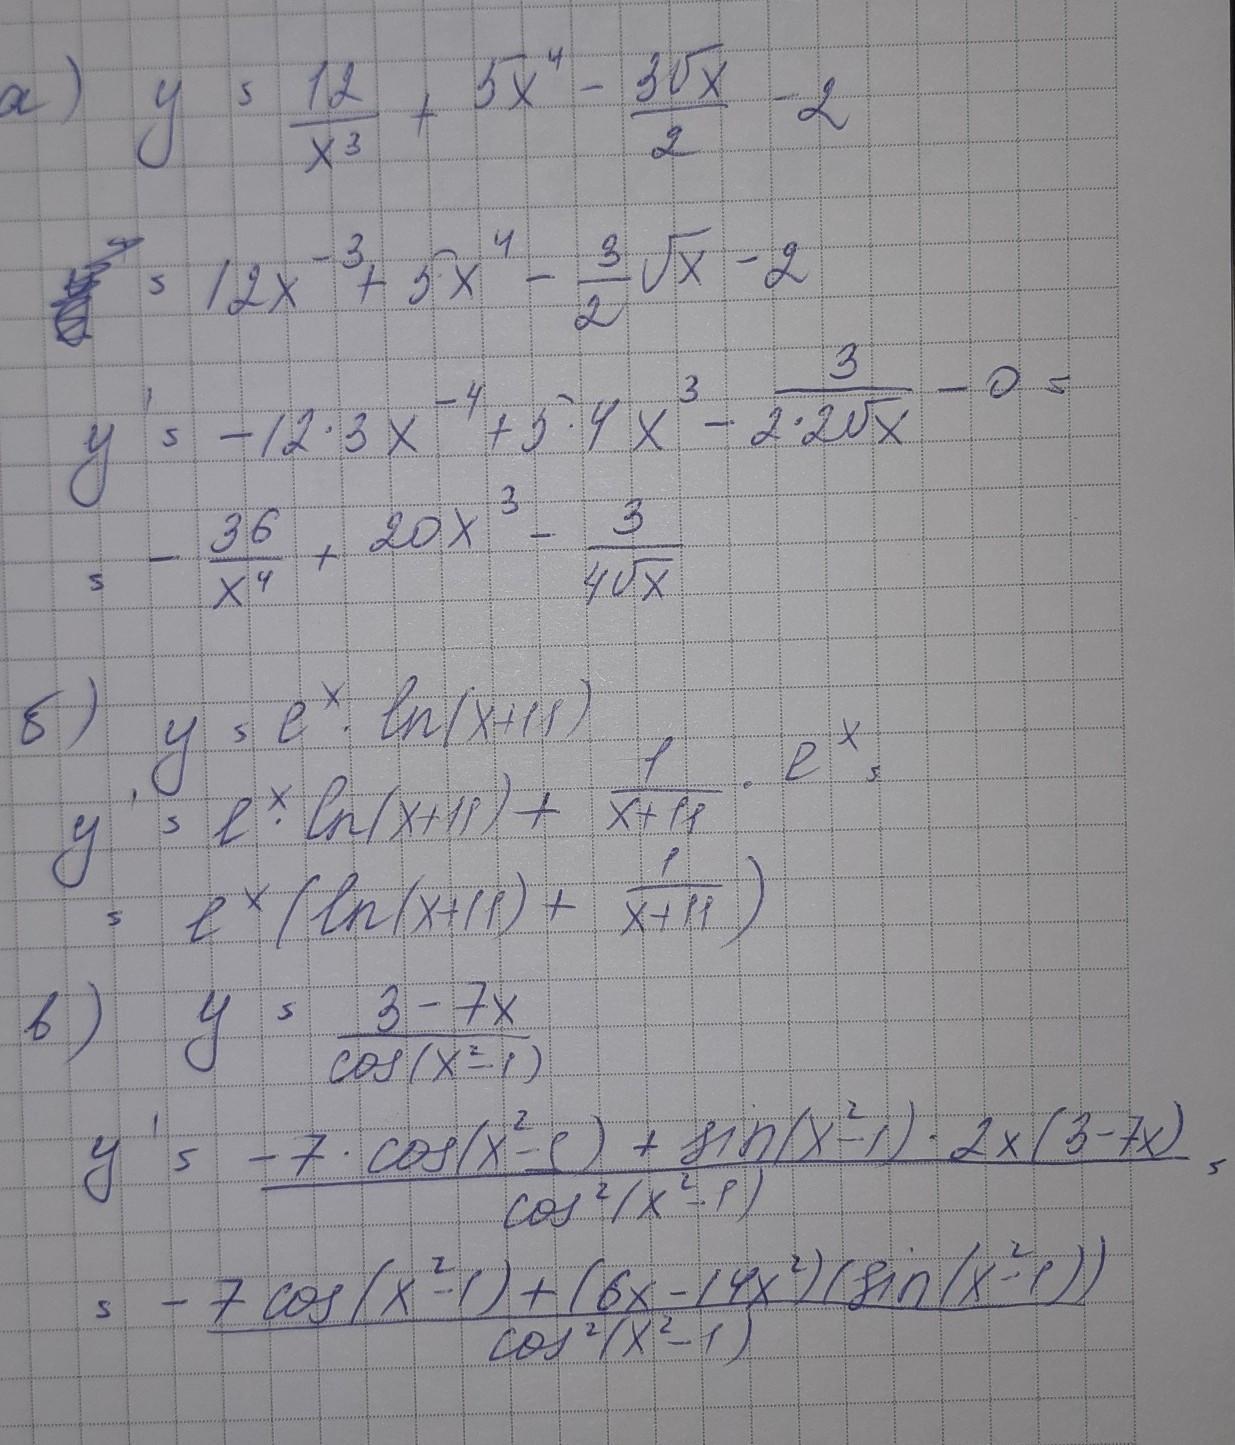 а) y = 12/x³ + 5x⁴ - 3√x/2 - 2
= 12x⁻³ + 5x⁴ - 3/2 √x - 2
y' = -12·3x⁻⁴ + 5·4x³ - 3/(2·2√x) - 0 =
= - 36/x⁴ + 20x³ - 3/(4√x)
б) y = eˣ · ln(x+11)
y' = eˣ · ln(x+11) + 1/(x+11) · eˣ =
= eˣ (ln(x+11) + 1/(x+11))
в) y = (3 - 7x)/cos(x²-1)
y' = (-7 · cos(x²-1) + sin(x²-1) · 2x(3-7x))/cos²(x²-1) =
= (-7 cos(x²-1) + (6x - 14x²)(sin(x²-1)))/cos²(x²-1)